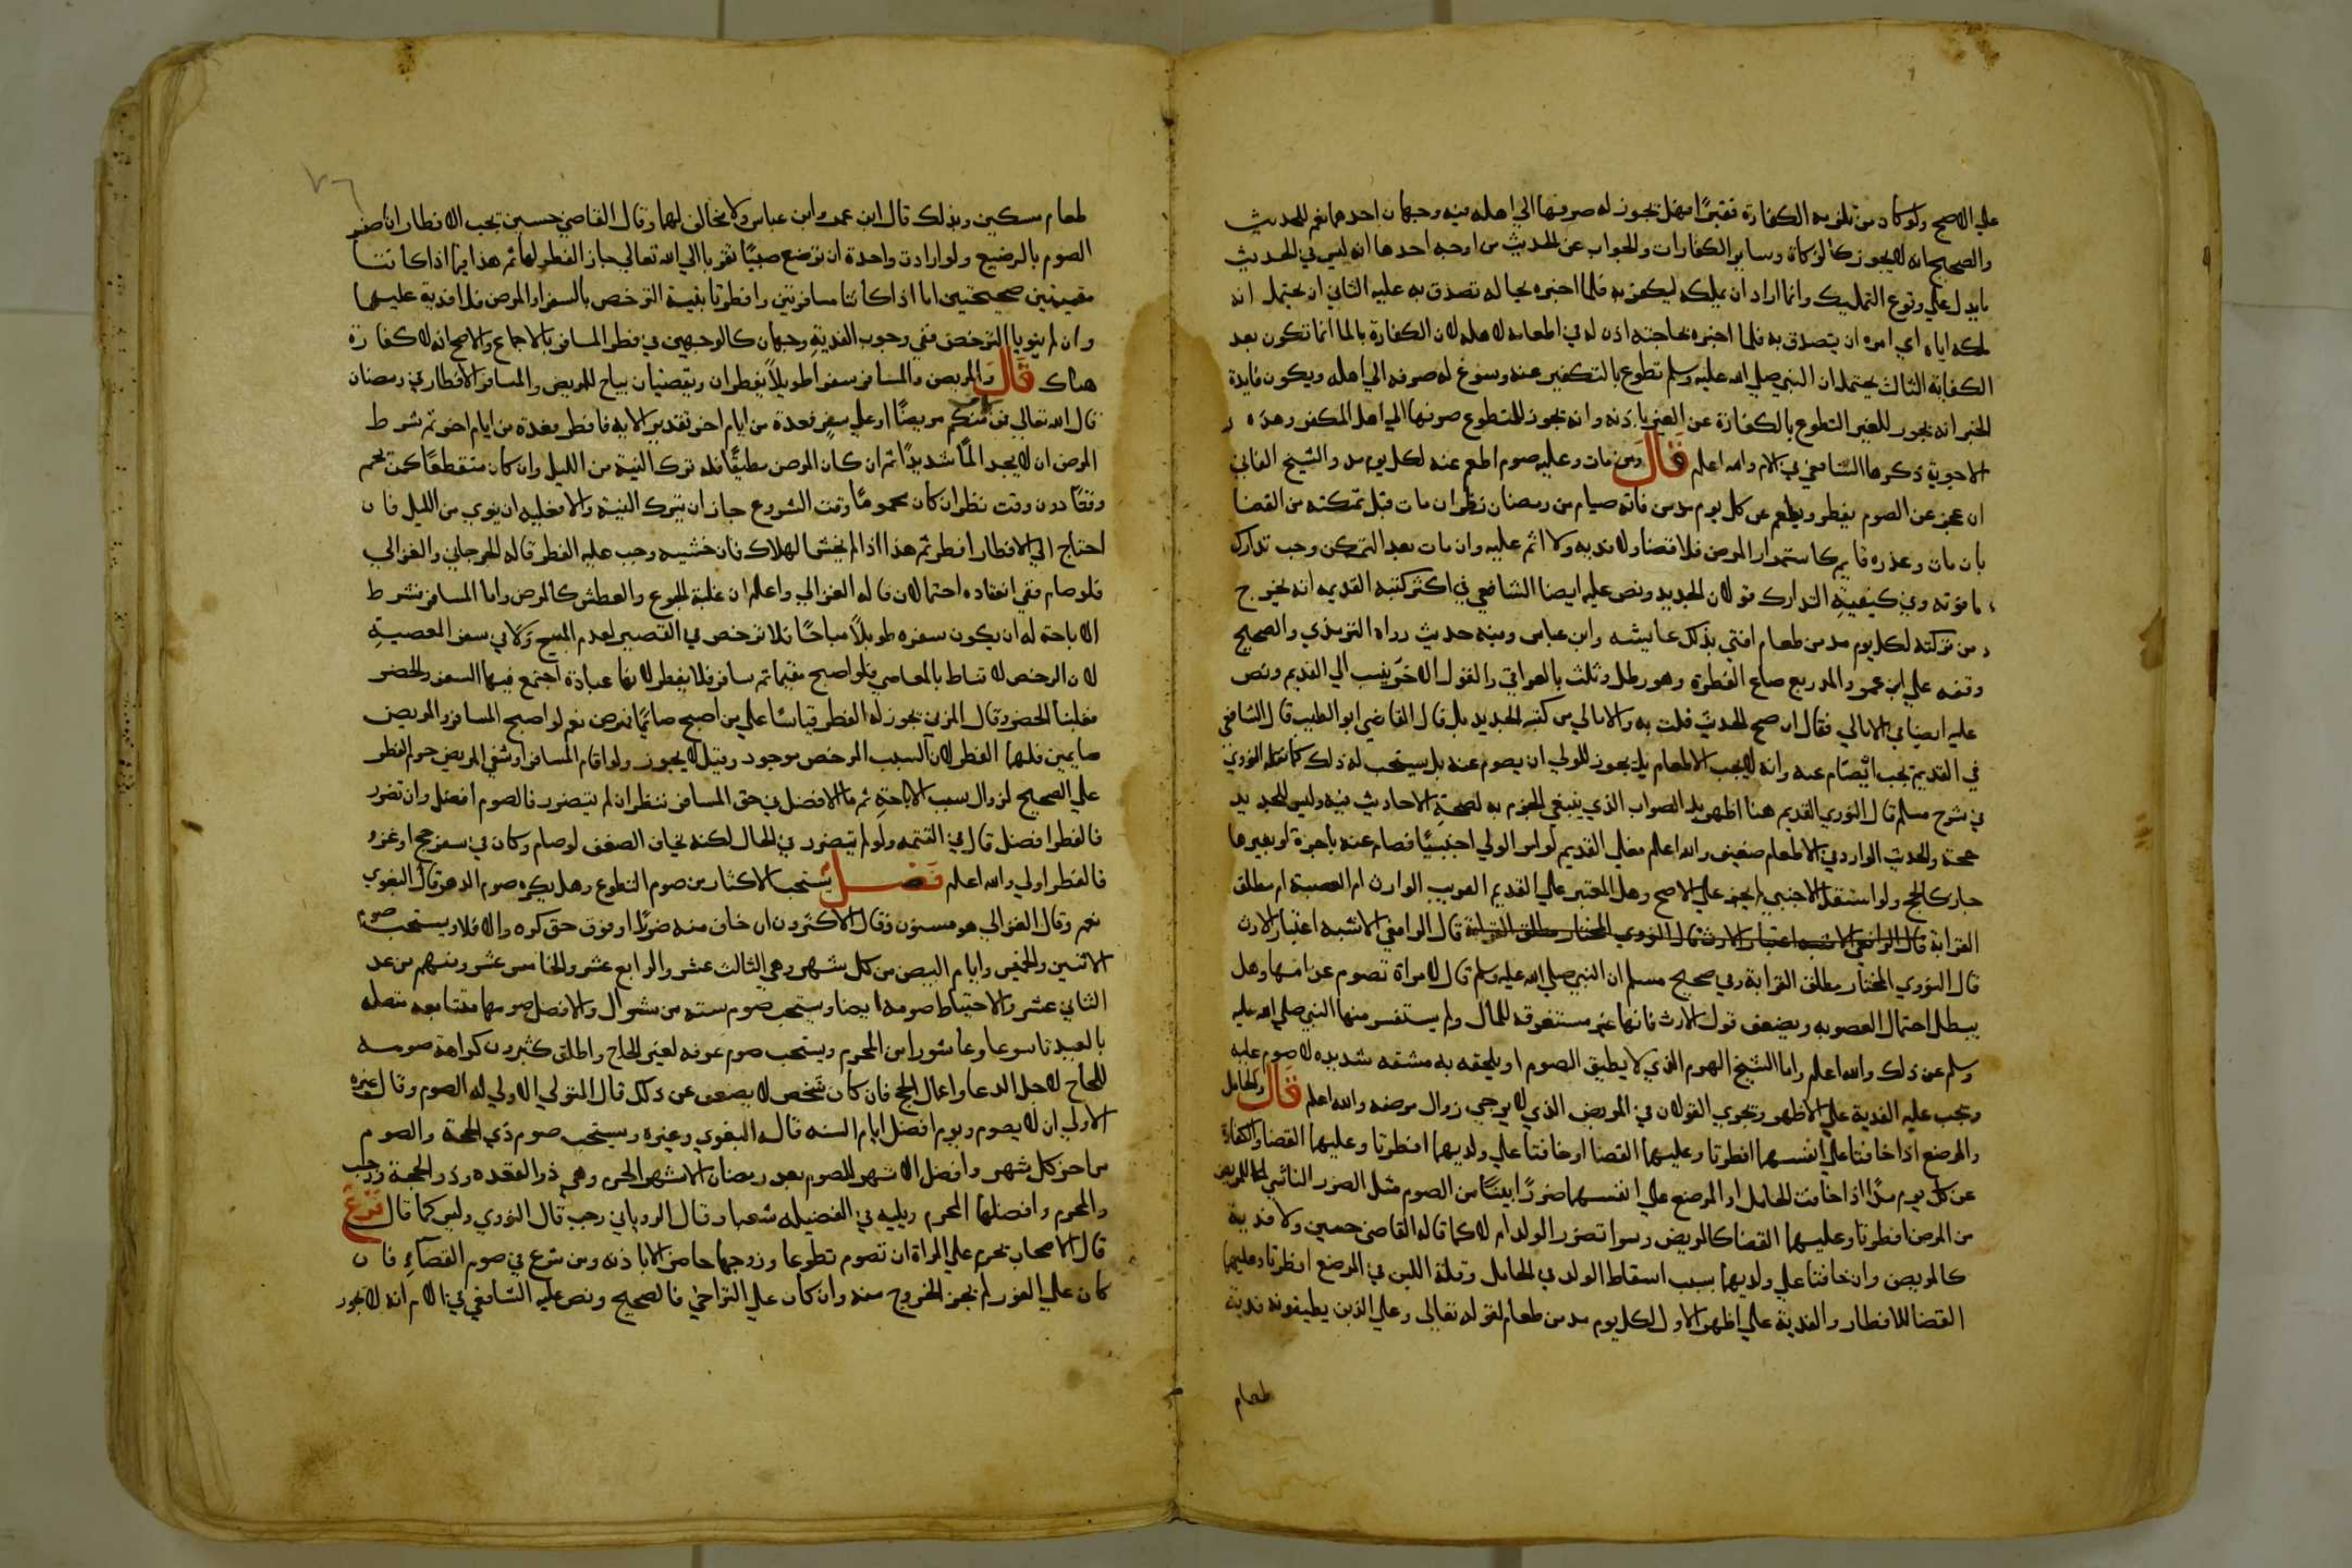 علي الاصح ولو كان من تلزمه الكفارة فقيرا فهل يجوز له صرفها الي اهله فيه وجهان احدهما نعم للحديث
والصحيح انه لا يجوز كالزكاة وساير الكفارات والجواب عن الحديث من اوجه احدها انه ليس في الحديث
ما يدل علي وقوع التمليك وانما اراد ان يملكه ليكفر به فلما اخبره بحاله تصدق به عليه الثاني ان يحتمل انه
ملكه اياه اي امره ان يتصدق به فلما اخبره بحاجته اذن له في اطعامه لاهله لان الكفارة بالمال انما تكون بعد
الكفاية الثالث يحتمل ان النبي صلي الله عليه وسلم تطوع بالتكفير عنه وسوغ له صرفه الي اهله ويكون فايدة
الخبر انه يجوز للغير التطوع بالكفارة عن الغير باذنه وانه يجوز للمتطوع صرفها الي اهل المكفر وهذه
الاجوبة ذكرها الشافعي في الام والله اعلم قال ومن مات وعليه صوم اطعم عنه لكل يوم مد والشيخ الفاني
ان عجز عن الصوم يفطر ويطعم عن كل يوم مد من فاته صيام من رمضان نظر ان مات قبل تمكنه من القضا
بان مات وعذره قايم كاستمرار المرض فلا قضا ولا فديه ولا اثم عليه وان مات بعد التمكن وجب تدارك
ما فوته وفي كيفية التدارك قولان الجديد ونص عليه ايضا الشافعي في اكثر كتبه القديمه انه يخرج
من تركته لكل يوم مد من طعام افتي بذلك عايشه وابن عباس وفيه حديث رواه الترمذي والصحيح
وقفه علي ابن عمر والمد ربع صاع الفطرة وهو رطل وثلث بالعراقي والقول الاخر ينسب الي القديم ونص
عليه ايضا في الامالي فقال ان صح الحديث قلت به والامالي من كتبه الجديد بل قال القاضي ابو الطيب قال الشافعي
في القديم يجب ان يصام عنه وانه لا يجب الاطعام بل يجوز للولي ان يصوم عنه بل يستحب له ذلك كما نقله النووي
في شرح مسلم قال النووي القديم هنا اظهر بل الصواب الذي ينبغي الجزم به لصحة الاحاديث فيه وليس للجديد
حجة والحديث الوارد في الاطعام ضعيف والله اعلم فعلي القديم لو امر الولي اجنبيا فصام عنه باجرة او بغيرها
جاز كالحج ولو استقل الاجنبي لم يجز علي الاصح وهل المعتبر علي القديم القريب الوارث ام العصبة ام مطلق
القرابة قال الرافعي الاشبه اعتبار الارث قال النووي المختار مطلق القرابة قال الرافعي الاشبه اعتبار الارث
قال النووي المختار مطلق القرابة وفي صحيح مسلم ان النبي صلي الله عليه وسلم قال لامراة تصوم عن امها وهل
يبطل احتمال العصوبه ويضعف قول الارث فانها غير مستغرقه للمال ولم يستفسر منها النبي صلي الله عليه
وسلم عن ذلك والله اعلم واما الشيخ الهرم الذي لا يطيق الصوم او يلحقه به مشقه شديده لا صوم عليه
وتجب عليه الفدية علي الاظهر ويجري القولان في المريض الذي لا يرجي زوال مرضه والله اعلم قال والحامل
والمرضع اذا خافتا علي انفسهما افطرتا وعليهما القضا او خافتا علي ولديهما افطرتا وعليهما القضا والكفارة
عن كل يوم مد اذا خافت الحامل او المرضع علي انفسهما ضررا بينا من الصوم مثل الضرر الناشي للمريض
من المرض افطرتا وعليهما القضا كالمريض وسوا تضرر الولد ام لا كما قاله القاضي حسين ولا فدية
كالمريض وان خافتا علي ولديهما بسبب اسقاط الولد في الحامل وقلة اللبن في المرضع افطرتا وعليهما
القضا للافطار والفدية علي اظهر الاول لكل يوم مد من طعام لقوله تعالي وعلي الذين يطيقونه فدية
طعام
طعام مسكين وبذلك قال ابن عمر وابن عباس ولا مخالف لهما وقال القاضي حسين تجب الافطار ان اضر
الصوم بالرضيع ولو ارادت واحدة ان ترضع صبيا تقربا الي الله تعالي جاز الفطر لها ثم هذا اذا كانتا
مقيمتين صحيحتين اما اذا كانتا مسافرتين وافطرتا بنية الترخص بالسفر او المرض فلا فدية عليهما
وان لم ينويا الترخص ففي وجوب الفدية وجهان كالوجهين في فطر المسافر بالاجماع والاصح انه لا كفارة
هناك قال والمريض والمسافر سفرا طويلا يفطران ويقضيان يباح للمريض والمسافر الافطار في رمضان
قال الله تعالي فمن كان منكم مريضا او علي سفر فعدة من ايام اخر تقدير الايه فافطر فعدة من ايام اخر ثم شرط
المرض ان لا يجد الما شديدا ثم ان كان المرض مطبقا فله ترك النية من الليل وان كان متقطعا كمن يحم
وقتا دون وقت نظر ان كان محموما وقت الشروع جاز ان يترك النية والا فعليه ان ينوي من الليل فان
احتاج الي الافطار افطر ثم هذا اذا لم يخش الهلاك فان خشيه وجب عليه الفطر قاله الجرجاني والغزالي
فلو صام ففي انعقاده احتمالان قاله الغزالي واعلم ان غلبة الجوع والعطش كالمرض واما المسافر فشرط
الاباحة له ان يكون سفره طويلا مباحا فلا ترخص في القصير لعدم المبيح ولا في سفر المعصية
لان الرخص لا تناط بالمعاصي فلو اصبح مقيما ثم سافر فلا يفطر لانها عبادة اجتمع فيها السفر والحضر
فغلبنا الحضر وقال المزني يجوز له الفطر قياسا علي من اصبح صايما فمرض نعم لو اصبح المسافر والمريض
صايمين فلهما الفطر لان السبب المرخص موجود وقيل لا يجوز ولو اقام المسافر او شفي المريض حرم الفطر
علي الصحيح لزوال سبب الاباحة ثم ما الافضل في حق المسافر ننظر ان لم يتضرر فالصوم افضل وان تضرر
فالفطر افضل قال في التتمه ولو لم يتضرر في الحال لكنه يخاف الضعف لو صام وكان في سفر حج او غزو
فالفطر اولي والله اعلم فصل يستحب الاكثار من صوم التطوع وهل يكره صوم الدهر قال البغوي
نعم وقال الغزالي هو مسنون وقال الاكثرون ان خاف منه ضررا او فوت حق كره والا فلا ويستحب صوم
الاثنين والخميس وايام البيض من كل شهر وهي الثالث عشر والرابع عشر والخامس عشر ومنهم من عد
الثاني عشر والاحتياط صومه ايضا ويستحب صوم سته من شوال والافضل صومها متتابعه متصله
بالعيد تاسوعا وعاشورا من المحرم ويستحب صوم عرفه لغير الحاج واطلق كثيرون كراهة صومه
للحاج لاجل الدعا واعمال الحج فان كان شخص لا يضعف عن ذلك قال المتولي الاولي له الصوم وقال غيره
الاولي ان لا يصوم ويوم افضل ايام السنه قاله البغوي وغيره ويستحب صوم ذي الحجة والصوم
من اخر كل شهر وافضل الاشهر للصوم بعد رمضان الاشهر الحرم وهي ذو القعده وذو الحجة ورجب
والمحرم وافضلها المحرم ويليه في الفضيله شعبان وقال الروياني رجب قال النووي وليس كما قال فرع
قال الاصحاب يحرم علي المراة ان تصوم تطوعا وزوجها حاضر الا باذنه ومن شرع في صوم القضاء فان
كان علي الفور لم يجز الخروج منه وان كان علي التراخي فالصحيح ونص عليه الشافعي في الام انه لا يجوز